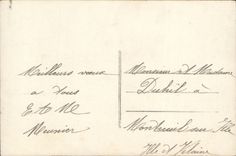 Meilleurs vœux
a tous
E et Me
Meunier
Monsieur et Madame
Duteil à
Montreuil sur Ille
Ille et Vilaine